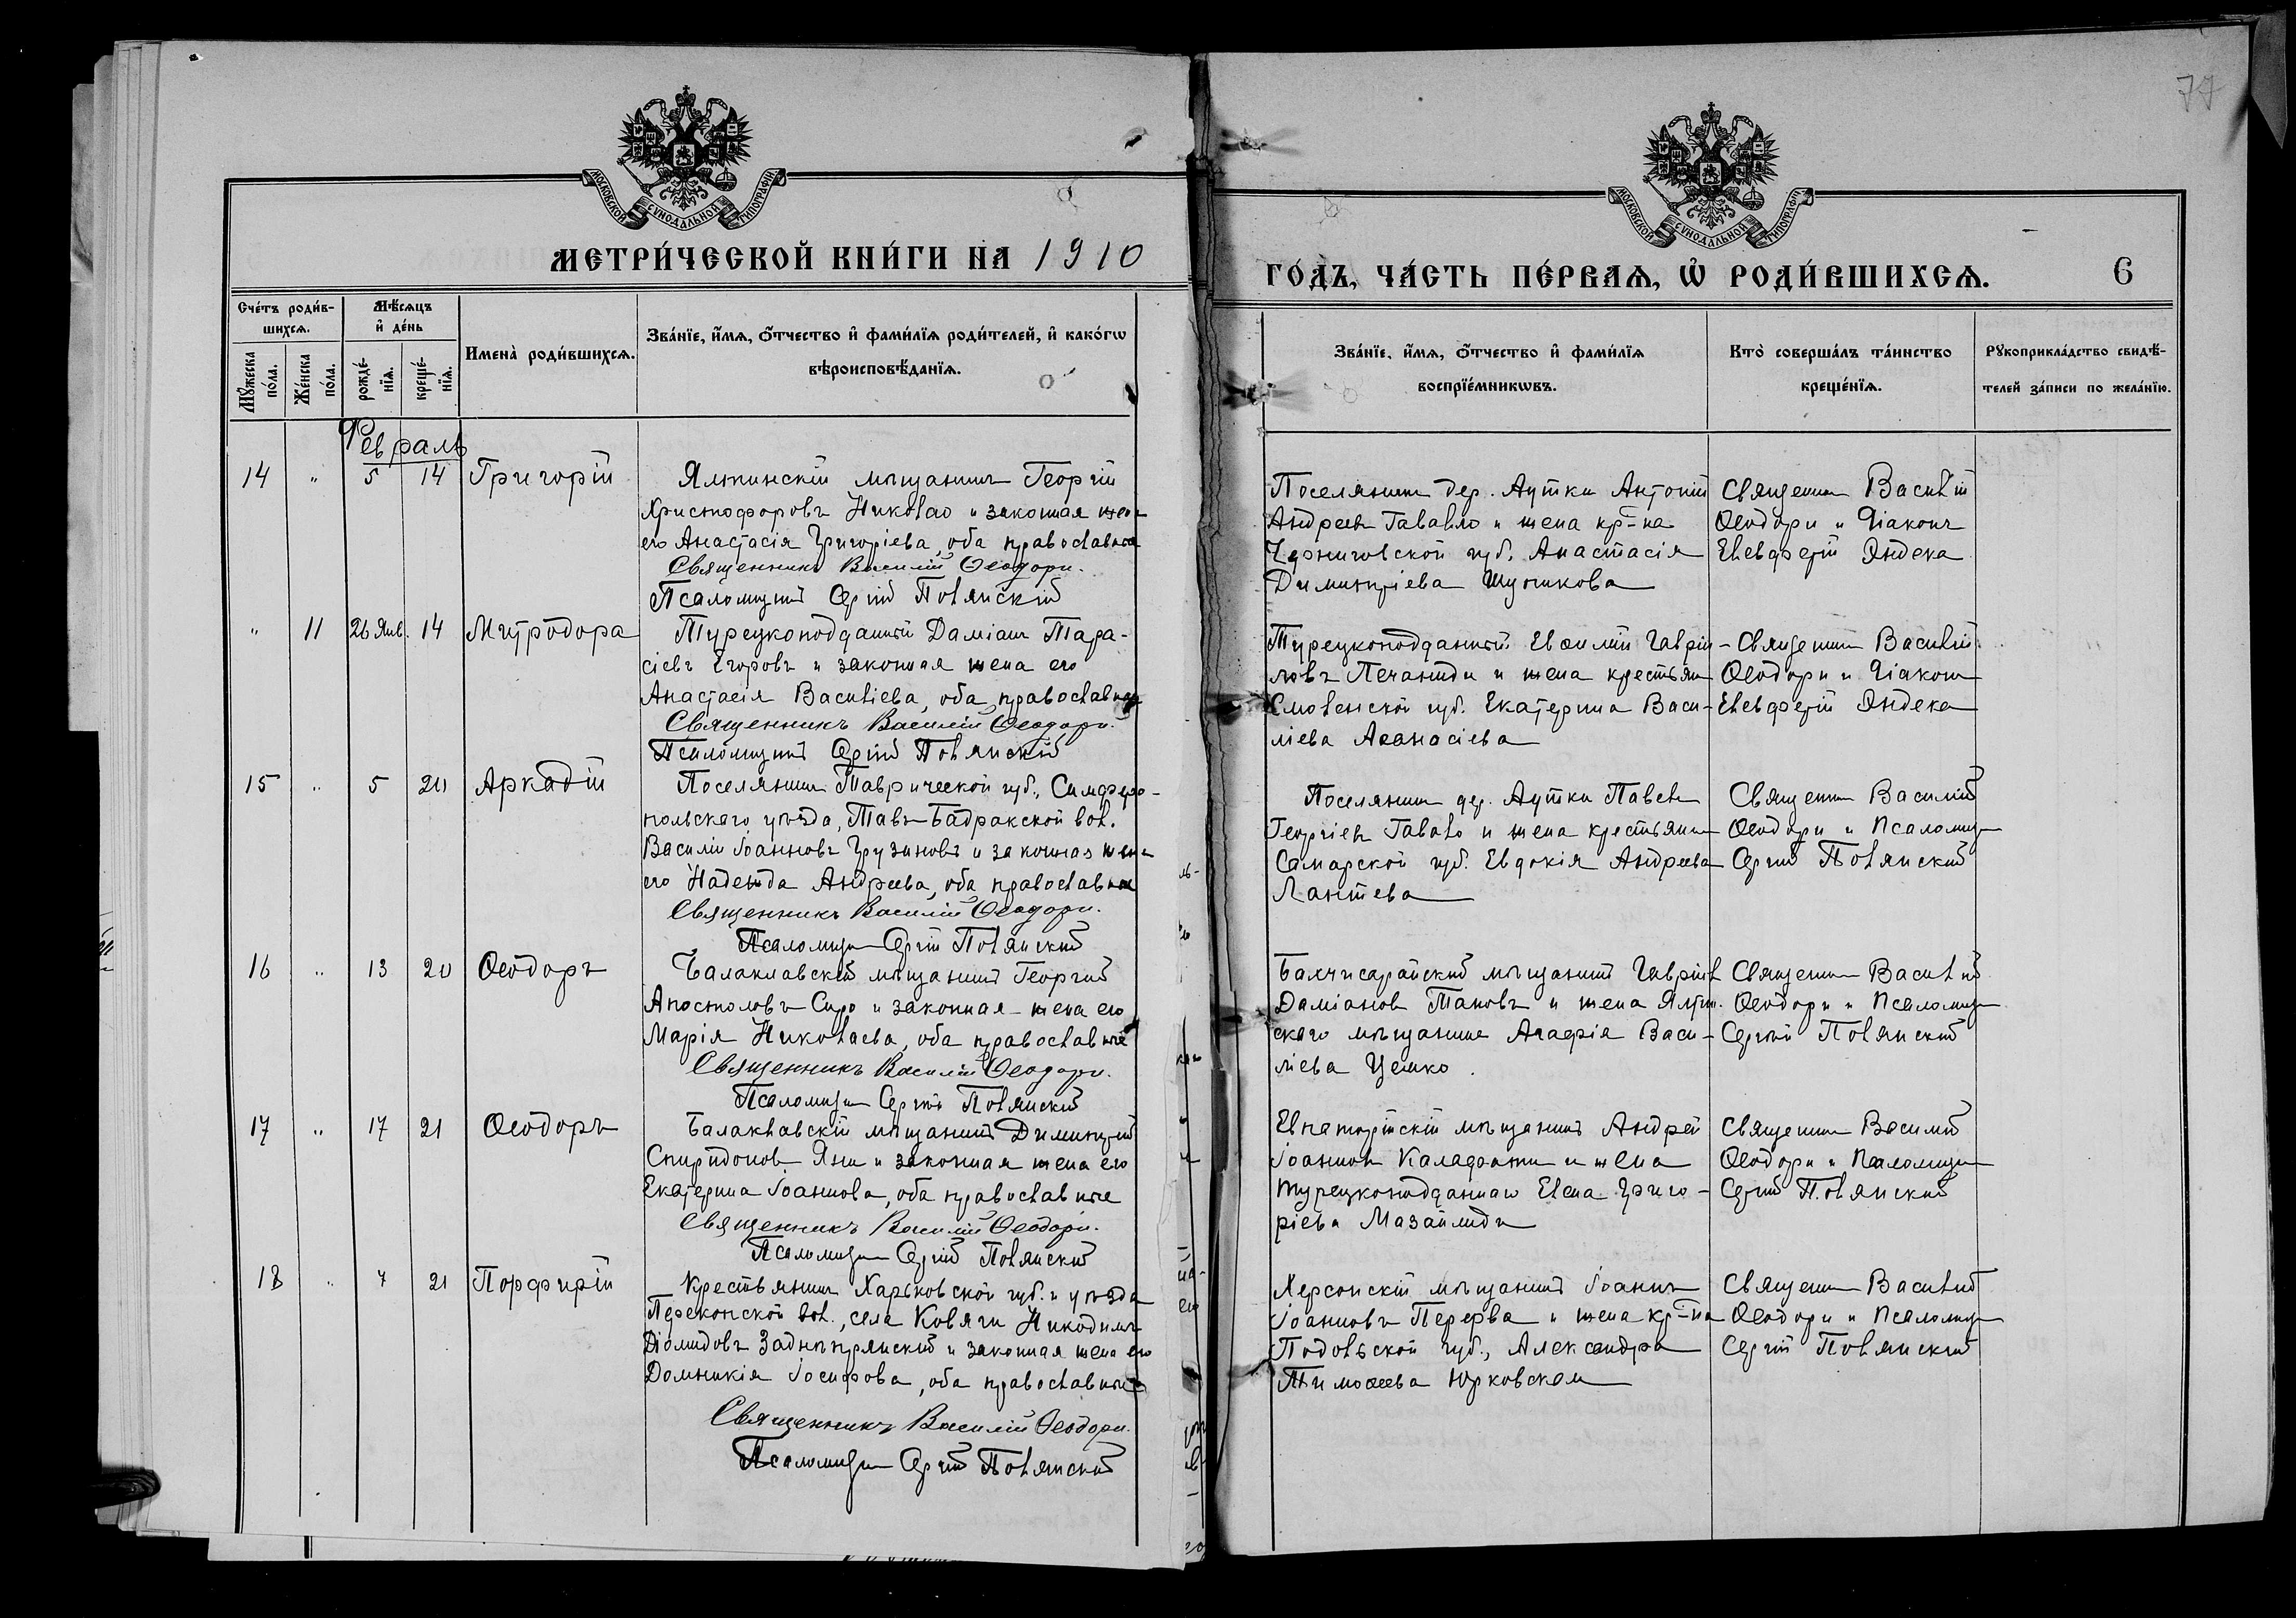 77
МОСКОВСКОЙ СѴНОДАЛЬНОЙ ТИПОГРАФІИ
МОСКОВСКОЙ СѴНОДАЛЬНОЙ ТИПОГРАФІИ
МЕТРИ́ЧЕСКОЙ КНИ́ГИ НА 1910
ГО́ДЪ, ЧА́СТЬ ПЕ́РВАѦ, Ѡ РОДИ́ВШИХСѦ. 6
Сче́тъ роди́в-
шихсѧ.
Мѣ́сѧцъ
и҆ де́нь
Мꙋ́жеска по́ла.
Же́нска по́ла.
рожде́-
нїѧ.
креще́-
нїѧ.
Имена̀ роди́вшихсѧ.
Зва́нїе, и҆́мѧ, ѻ҆́тчество и҆ фами́лїѧ роди́телей, и҆ како́гѡ
вѣроисповѣ́данїѧ.
Зва́нїе, и҆́мѧ, ѻ҆́тчество и҆ фами́лїѧ
воспрїе́мникѡвъ.
Кто̀ соверша́лъ та́инство
креще́нїѧ.
Рꙋкоприкла́дство свидѣ́-
телей за́писи по жела́нїю.
Февраль
14 " 5 14 Григорій
Ялтинскій мѣщанинъ Георгій
Христофоровъ Николао и законная жена
его Анастасія Григоріева, оба православные
Священникъ Василій Ѳеодори.
Псаломщикъ Сергій Полянскій
Поселянинъ дер. Аутки Антоній
Андреевъ Гавало и жена кр-на
Черниговской губ. Анастасія
Димитріева Шушкова
Священникъ Василій
Ѳеодори и Діаконъ
Елевферій Яндека
" 11 26 Янв. 14 Митродора
Турецкоподданный Даміанъ Тара-
сіевъ Егоровъ и законная жена его
Анастасія Василіева, оба православные
Священникъ Василій Ѳеодори.
Псаломщикъ Сергій Полянскій
Турецкоподданный Евѳимій Гаврі-
ловъ и жена крестьянина
Смоленской губ. Екатерина Васи-
ліева Аѳанасіева
Священникъ Василій
Ѳеодори и Діаконъ
Елевферій Яндека
15 " 5 20 Аркадій
Поселянинъ Таврической губ., Симферо-
польскаго уѣзда, Тавъ-Бадракской вол.
Василій Іоанновъ Грузиновъ и законная жена
его Надежда Андреева, оба православные
Священникъ Василій Ѳеодори.
Псаломщикъ Сергій Полянскій
Поселянинъ дер. Аутки Павелъ
Георгіевъ Гавало и жена крестьянина
Самарской губ. Евдокія Андреева
Лаптева
Священникъ Василій
Ѳеодори и Псаломщикъ
Сергій Полянскій
16 " 13 20 Ѳеодоръ
Балаклавскій мѣщанинъ Георгій
Апостоловъ Сиро и законная жена его
Марія Николаева, оба православные
Священникъ Василій Ѳеодори.
Псаломщикъ Сергій Полянскій
Бахчисарайскій мѣщанинъ Гавріилъ
Даміановъ Таковъ и жена Ялтин-
скаго мѣщанина Агафія Васи-
ліева Цемко.
Священникъ Василій
Ѳеодори и Псаломщикъ
Сергій Полянскій
17 " 17 21 Ѳеодоръ
Балаклавскій мѣщанинъ Димитрій
Спиридоновъ Яни и законная жена его
Екатерина Іоаннова, оба православные
Священникъ Василій Ѳеодори.
Псаломщикъ Сергій Полянскій
Евпаторійскій мѣщанинъ Андрей
Іоанновъ Калафати и жена
турецкоподданнаго Елена Григо-
ріева Мазаиліди
Священникъ Василій
Ѳеодори и Псаломщикъ
Сергій Полянскій
18 " 7 21 Порфирій
Крестьянинъ Харьковской губ. и уѣзда
Перекопской вол., села Ковяги Никодимъ
Діомидовъ Заднѣпрянскій и законная жена его
Домникія Іосифова, оба православные
Священникъ Василій Ѳеодори.
Псаломщикъ Сергій Полянскій
Херсонскій мѣщанинъ Іоаннъ
Іоанновъ Перерва и жена кр-на
Подольской губ., Александра
Тимоѳеева Юрковская
Священникъ Василій
Ѳеодори и Псаломщикъ
Сергій Полянскій